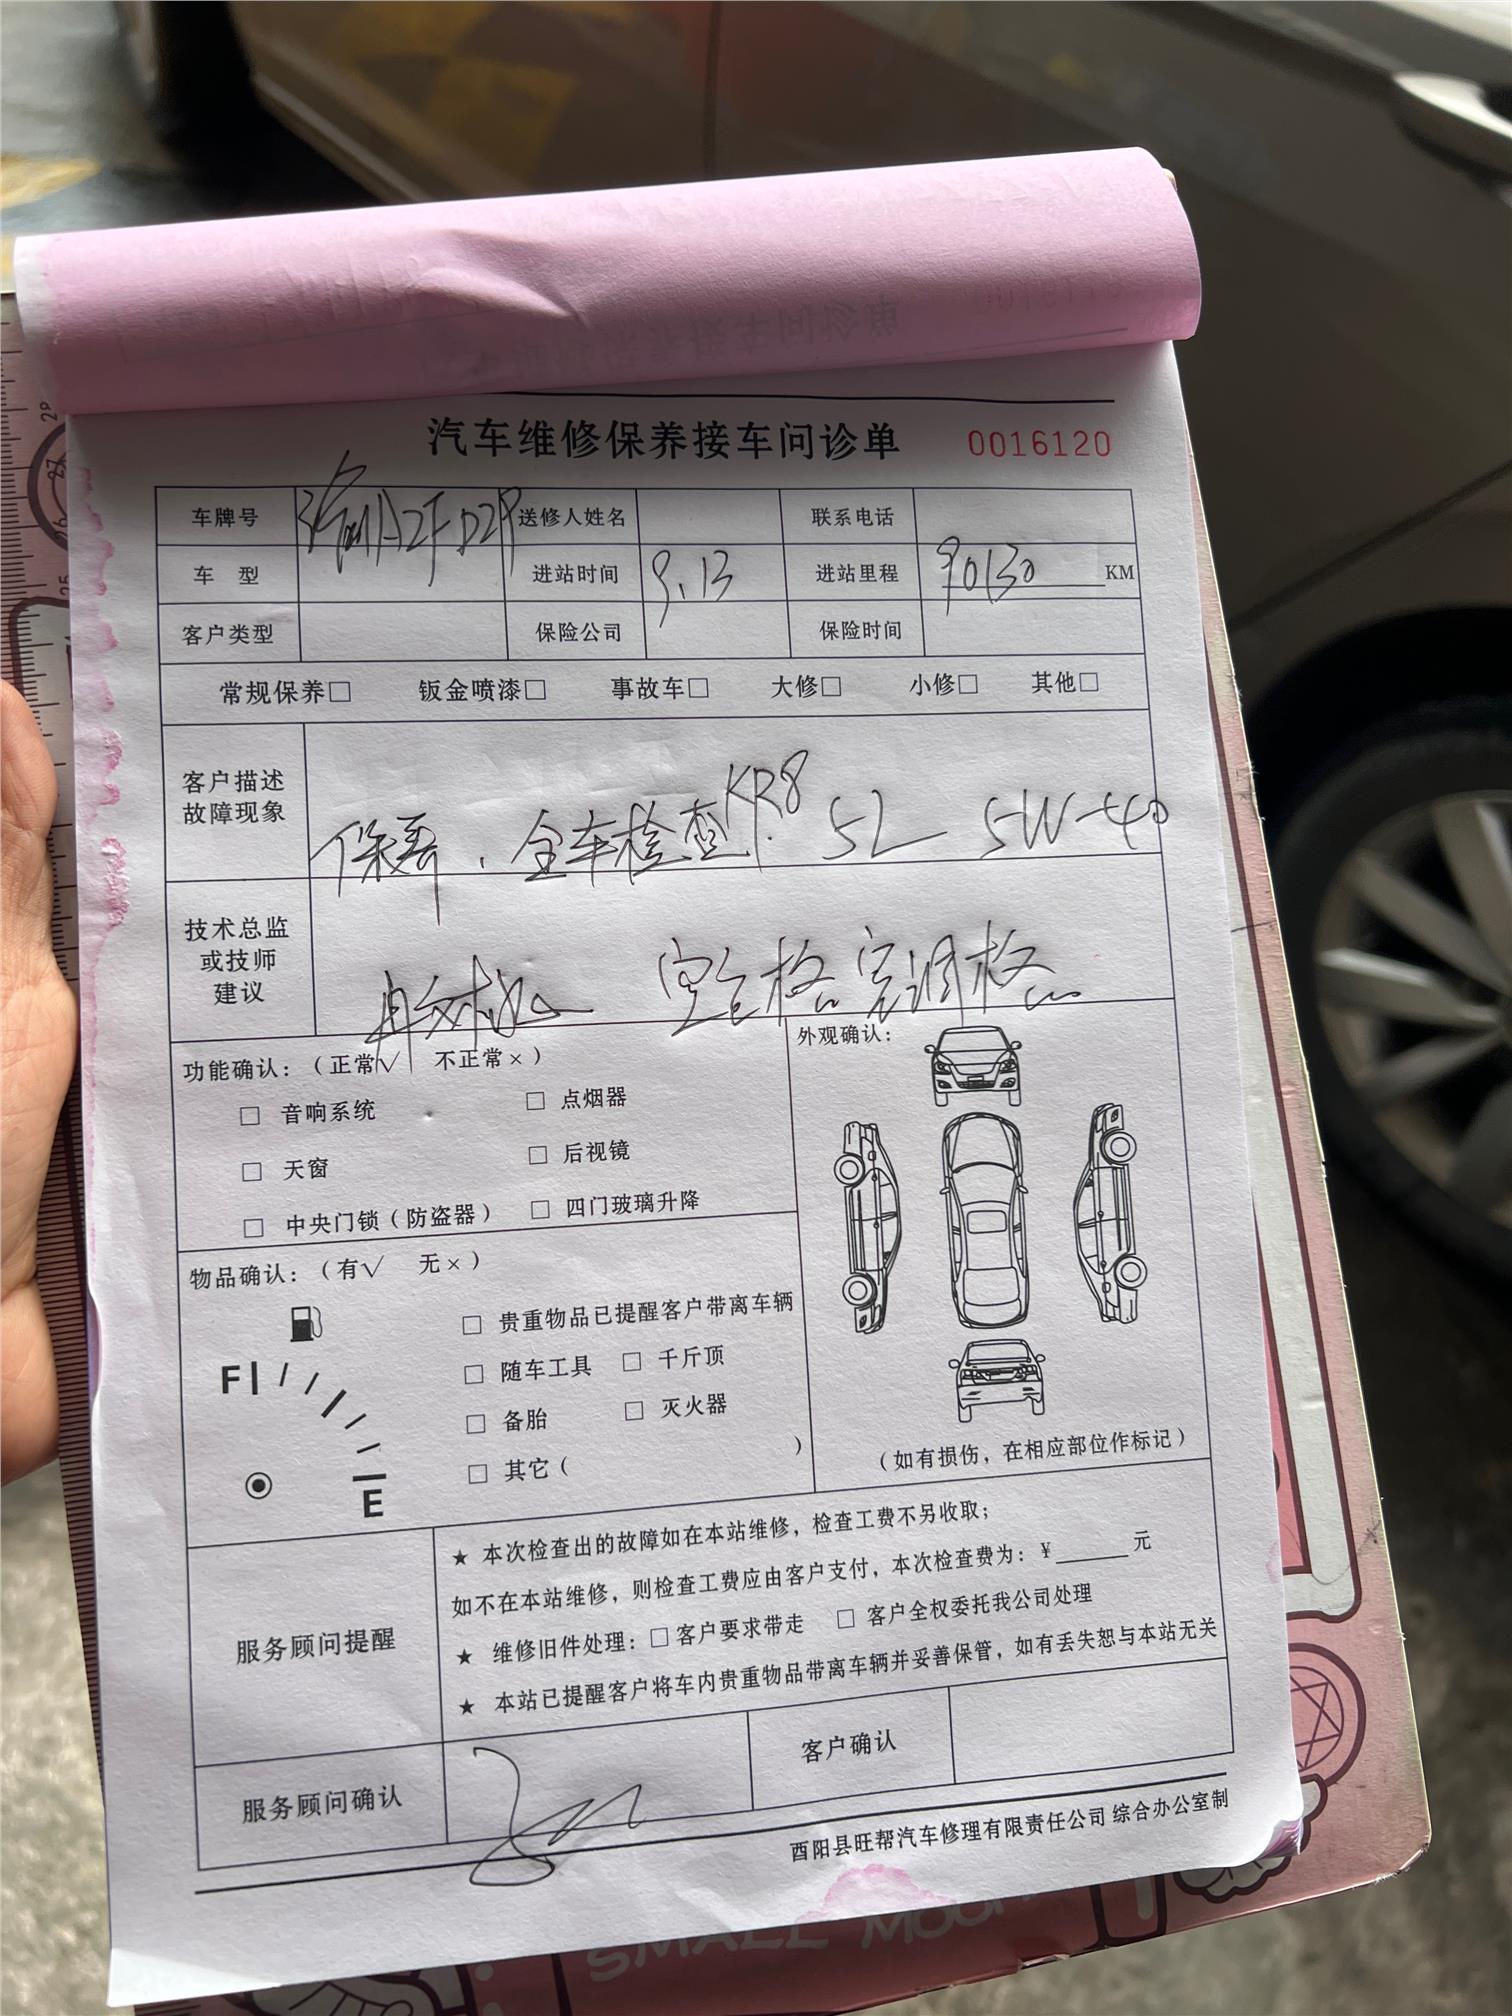 汽车维修保养接车问诊单 0016120
车牌号 渝A2FD29 送修人姓名 联系电话
车 型 进站时间 9.13 进站里程 90130 KM
客户类型 保险公司 保险时间
常规保养□ 钣金喷漆□ 事故车□ 大修□ 小修□ 其他□
客户描述
故障现象
保养、全车检查 KR8 5L 5W-40
技术总监
或技师
建议
空气格 空调格
功能确认：（正常√ 不正常×）
□ 音响系统 □ 点烟器
□ 天窗 □ 后视镜
□ 中央门锁（防盗器） □ 四门玻璃升降
外观确认：
（如有损伤，在相应部位作标记）
物品确认：（有√ 无×）
F
E
□ 贵重物品已提醒客户带离车辆
□ 随车工具 □ 千斤顶
□ 备胎 □ 灭火器
□ 其它（ ）
服务顾问提醒
★ 本次检查出的故障如在本站维修，检查工费不另收取；
如不在本站维修，则检查工费应由客户支付，本次检查费为：¥______元
★ 维修旧件处理：□客户要求带走 □ 客户全权委托我公司处理
★ 本站已提醒客户将车内贵重物品带离车辆并妥善保管，如有丢失恕与本站无关
服务顾问确认 客户确认
酉阳县旺帮汽车修理有限责任公司 综合办公室制
SMALL